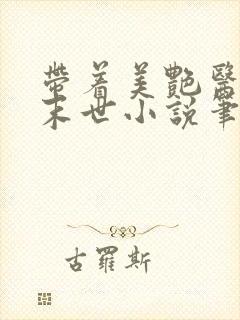 帶着美艷醫
末世小說筆
古羅斯